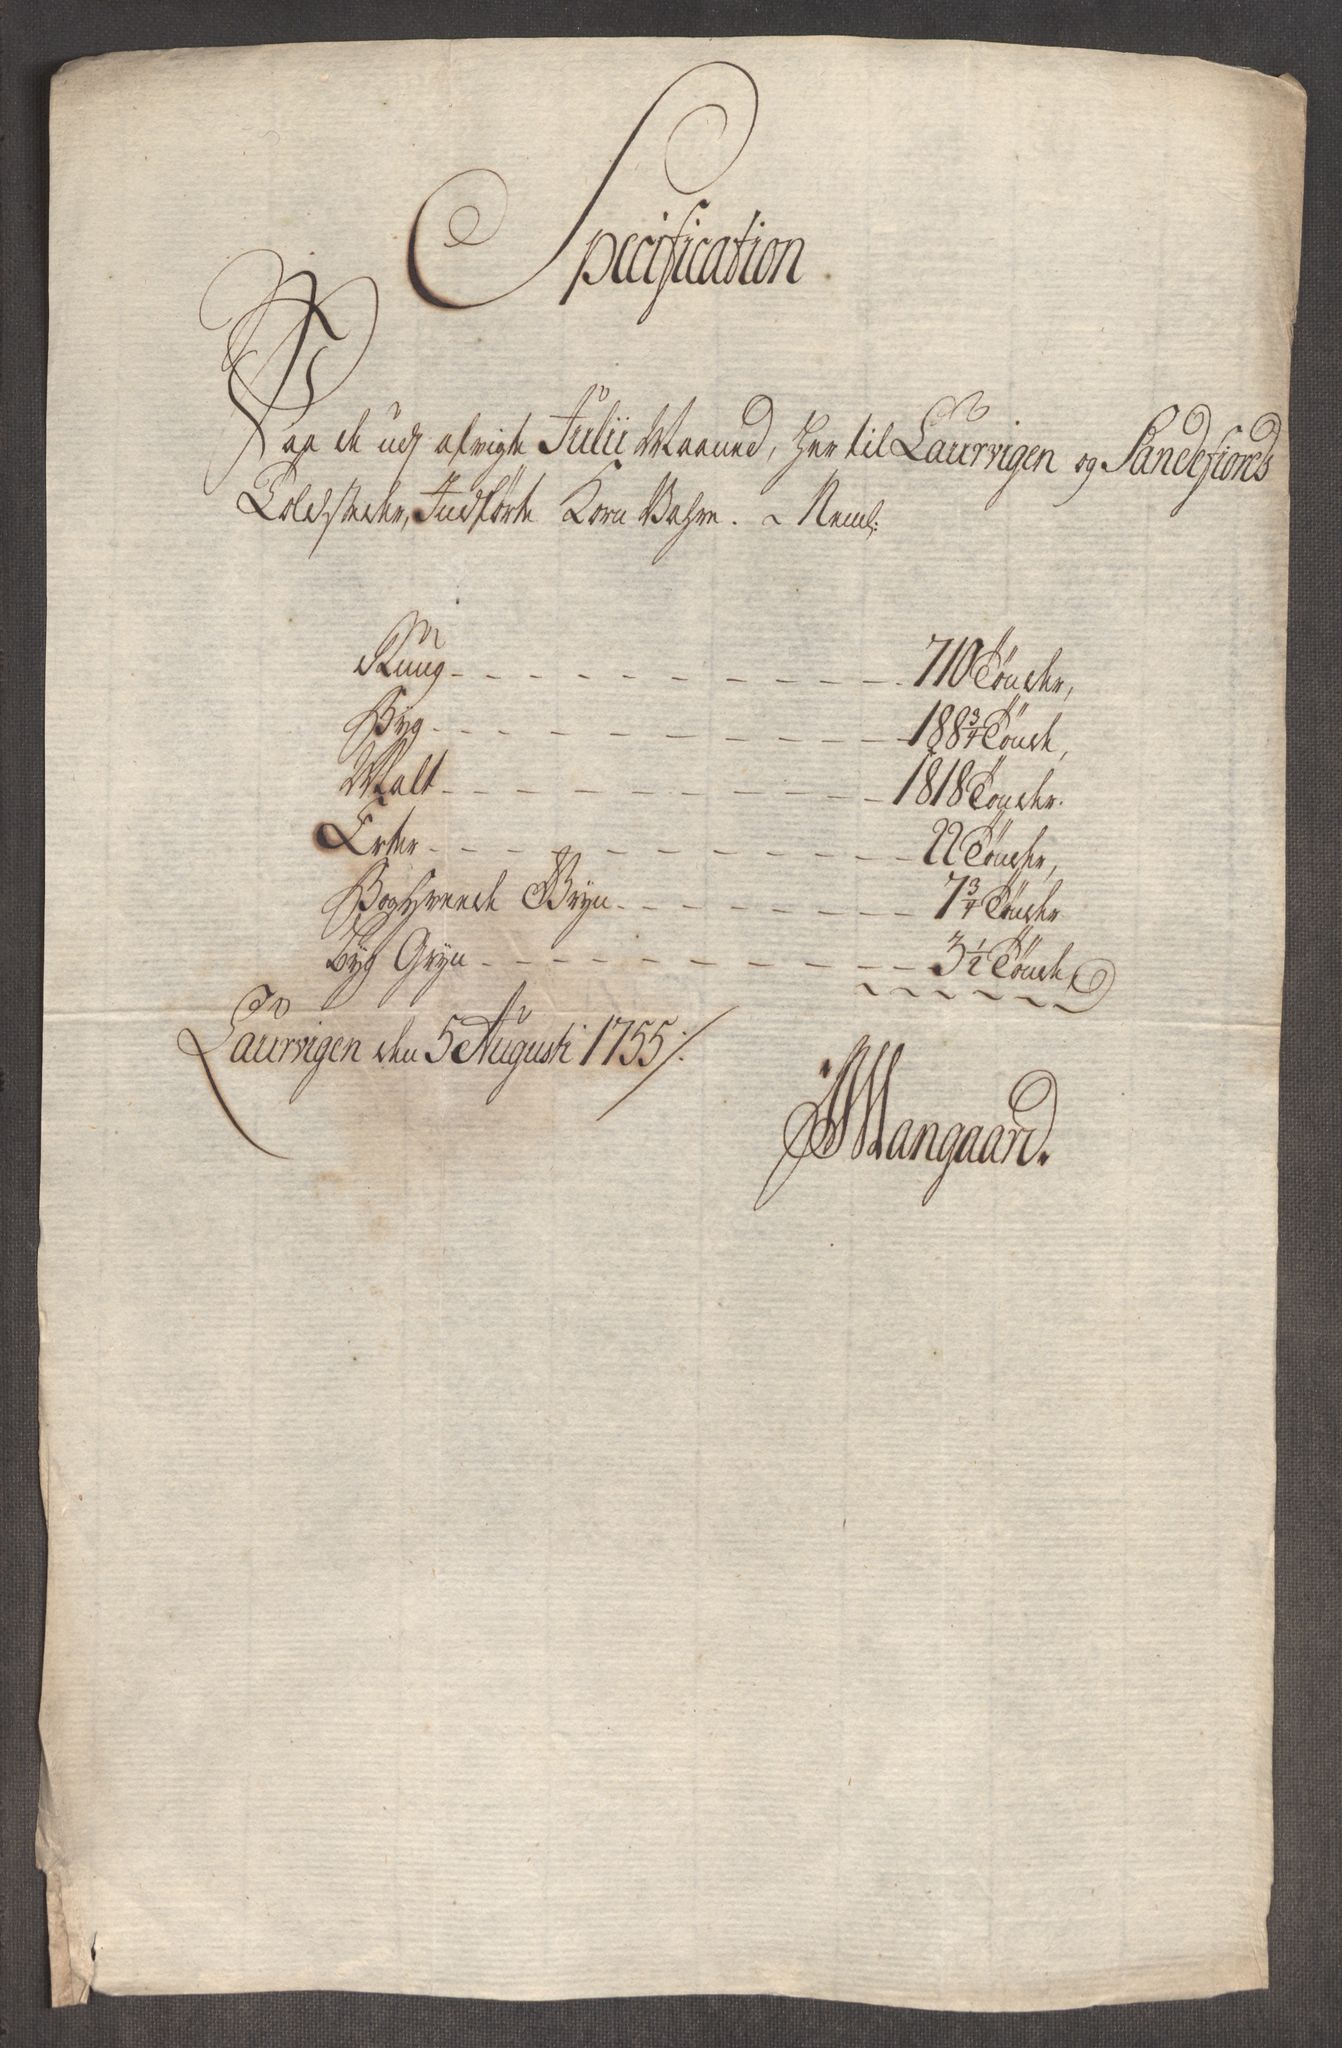 Specification
Paa de udj afvigte Julii Maaned, her til Laurvigen og Sandefiords
Toldsteder, Indførte Korn Vahre. Neml:
Rung 710 Tønder,
Byg 188 3/4 Tønde,
Malt 1818 Tønder.
Erter 22 Tønder,
Boghvende Gryn 7 3/4 Tønder
Byg Gryn 3 1/2 Tønde,
Laurvigen den 5 Augusti 1755
Mangaard.